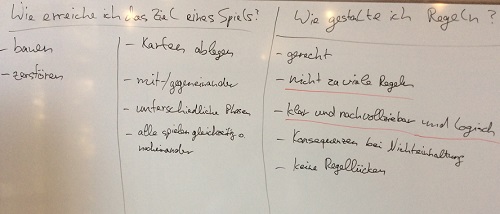 Wie erreiche ich das Ziel eines Spiels?
- bauen
- zerstören
- Karten ablegen
- mit-/gegeneinander
- unterschiedliche Phasen
- alle spielen gleichzeitig o.
nacheinander
Wie gestalte ich Regeln?
- gerecht
- nicht zu viele Regeln
- klar und nachvollziehbar und logisch
- Konsequenzen bei Nichteinhaltung
- keine Regellücken